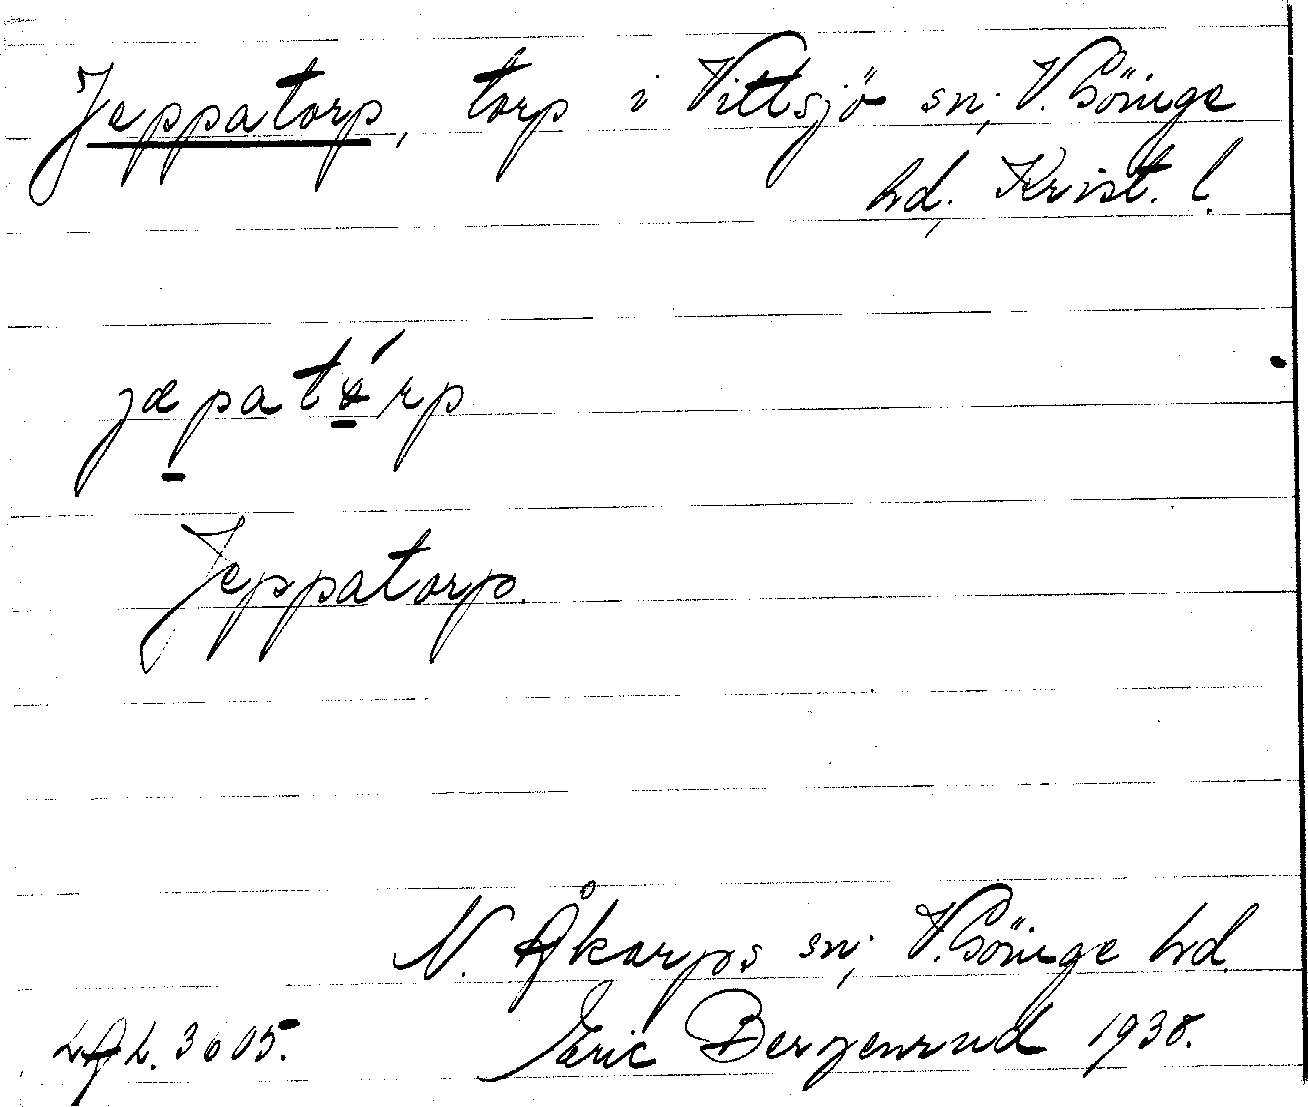 Jeppatorp, torp i Vittsjö sn, V. Göinge
hd, Krist. l.
jæpatårp
Jeppatorp.
N. Åkarps sn, V. Göinge hd.
LAL. 3605. Eric Bergenrud 1938.